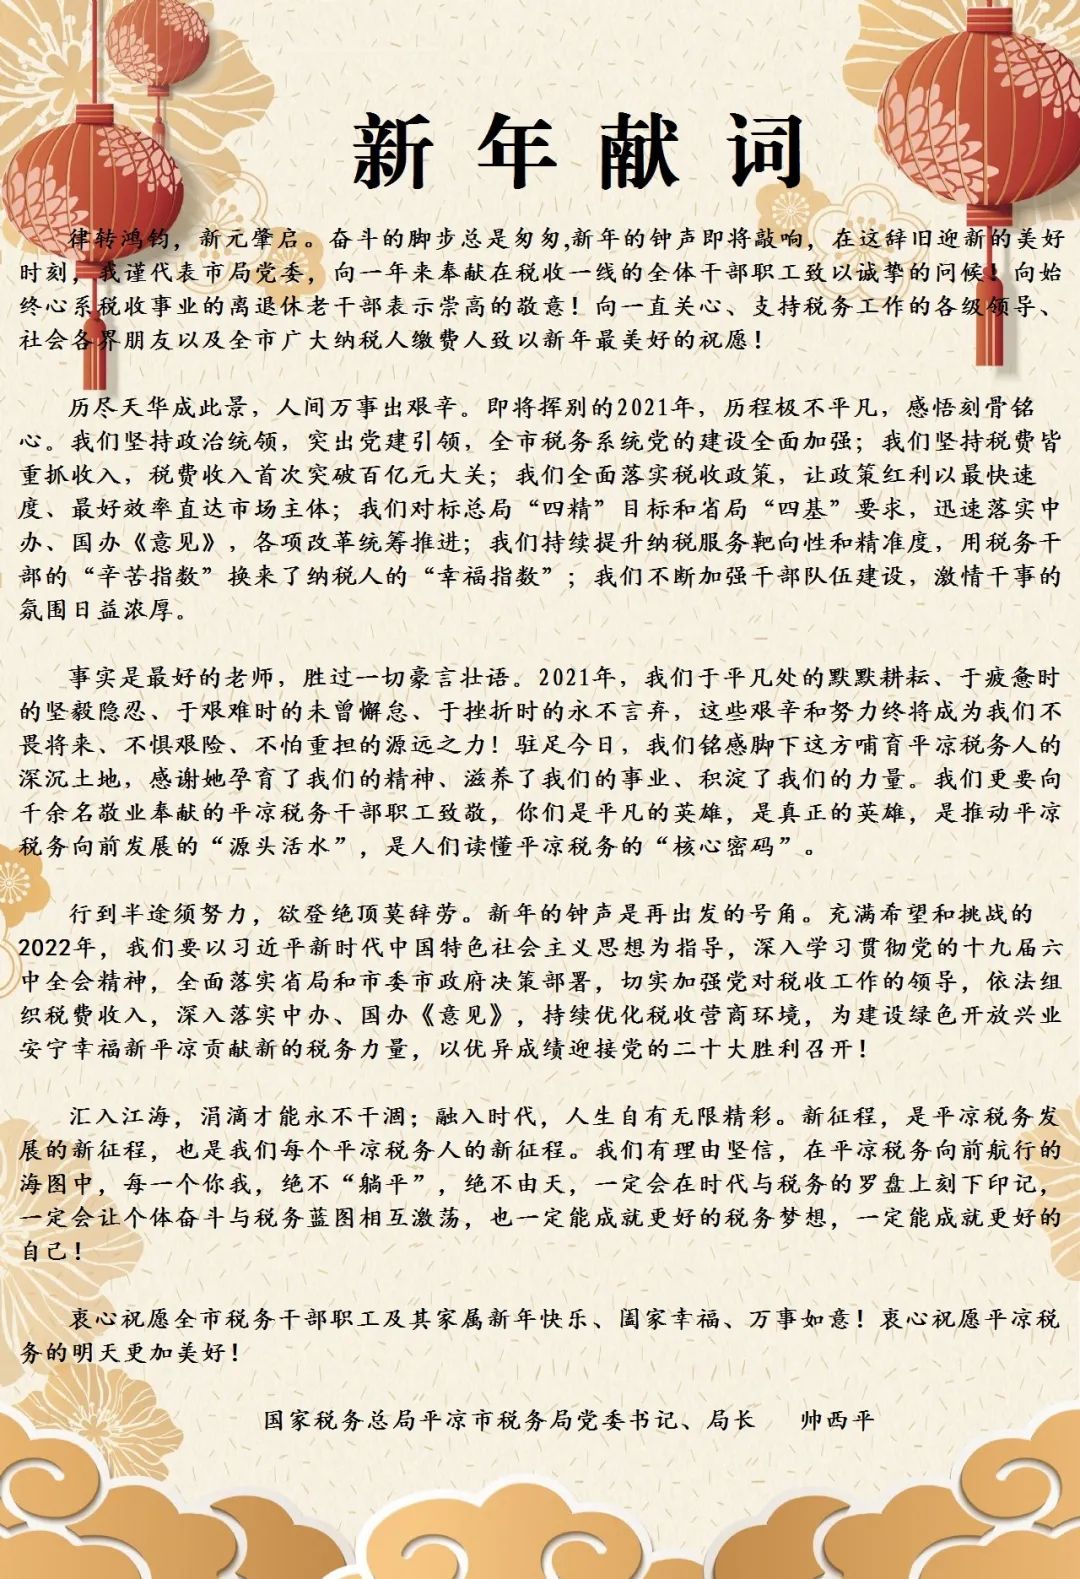 新年献词
律转鸿钧，新元肇启。奋斗的脚步总是匆匆,新年的钟声即将敲响，在这辞旧迎新的美好
时刻，我谨代表市局党委，向一年来奉献在税收一线的全体干部职工致以诚挚的问候！向始
终心系税收事业的离退休老干部表示崇高的敬意！向一直关心、支持税务工作的各级领导、
社会各界朋友以及全市广大纳税人缴费人致以新年最美好的祝愿！
历尽天华成此景，人间万事出艰辛。即将挥别的2021年，历程极不平凡，感悟刻骨铭
心。我们坚持政治统领，突出党建引领，全市税务系统党的建设全面加强；我们坚持税费皆
重抓收入，税费收入首次突破百亿元大关；我们全面落实税收政策，让政策红利以最快速
度、最好效率直达市场主体；我们对标总局“四精”目标和省局“四基”要求，迅速落实中
办、国办《意见》，各项改革统筹推进；我们持续提升纳税服务靶向性和精准度，用税务干
部的“辛苦指数”换来了纳税人的“幸福指数”；我们不断加强干部队伍建设，激情干事的
氛围日益浓厚。
事实是最好的老师，胜过一切豪言壮语。2021年，我们于平凡处的默默耕耘、于疲惫时
的坚毅隐忍、于艰难时的未曾懈怠、于挫折时的永不言弃，这些艰辛和努力终将成为我们不
畏将来、不惧艰险、不怕重担的源远之力！驻足今日，我们铭感脚下这方哺育平凉税务人的
深沉土地，感谢她孕育了我们的精神、滋养了我们的事业、积淀了我们的力量。我们更要向
千余名敬业奉献的平凉税务干部职工致敬，你们是平凡的英雄，是真正的英雄，是推动平凉
税务向前发展的“源头活水”，是人们读懂平凉税务的“核心密码”。
行到半途须努力，欲登绝顶莫辞劳。新年的钟声是再出发的号角。充满希望和挑战的
2022年，我们要以习近平新时代中国特色社会主义思想为指导，深入学习贯彻党的十九届六
中全会精神，全面落实省局和市委市政府决策部署，切实加强党对税收工作的领导，依法组
织税费收入，深入落实中办、国办《意见》，持续优化税收营商环境，为建设绿色开放兴业
安宁幸福新平凉贡献新的税务力量，以优异成绩迎接党的二十大胜利召开！
汇入江海，涓滴才能永不干涸；融入时代，人生自有无限精彩。新征程，是平凉税务发
展的新征程，也是我们每个平凉税务人的新征程。我们有理由坚信，在平凉税务向前航行的
海图中，每一个你我，绝不“躺平”，绝不由天，一定会在时代与税务的罗盘上刻下印记，
一定会让个体奋斗与税务蓝图相互激荡，也一定能成就更好的税务梦想，一定能成就更好的
自己！
衷心祝愿全市税务干部职工及其家属新年快乐、阖家幸福、万事如意！衷心祝愿平凉税
务的明天更加美好！
国家税务总局平凉市税务局党委书记、局长 帅西平